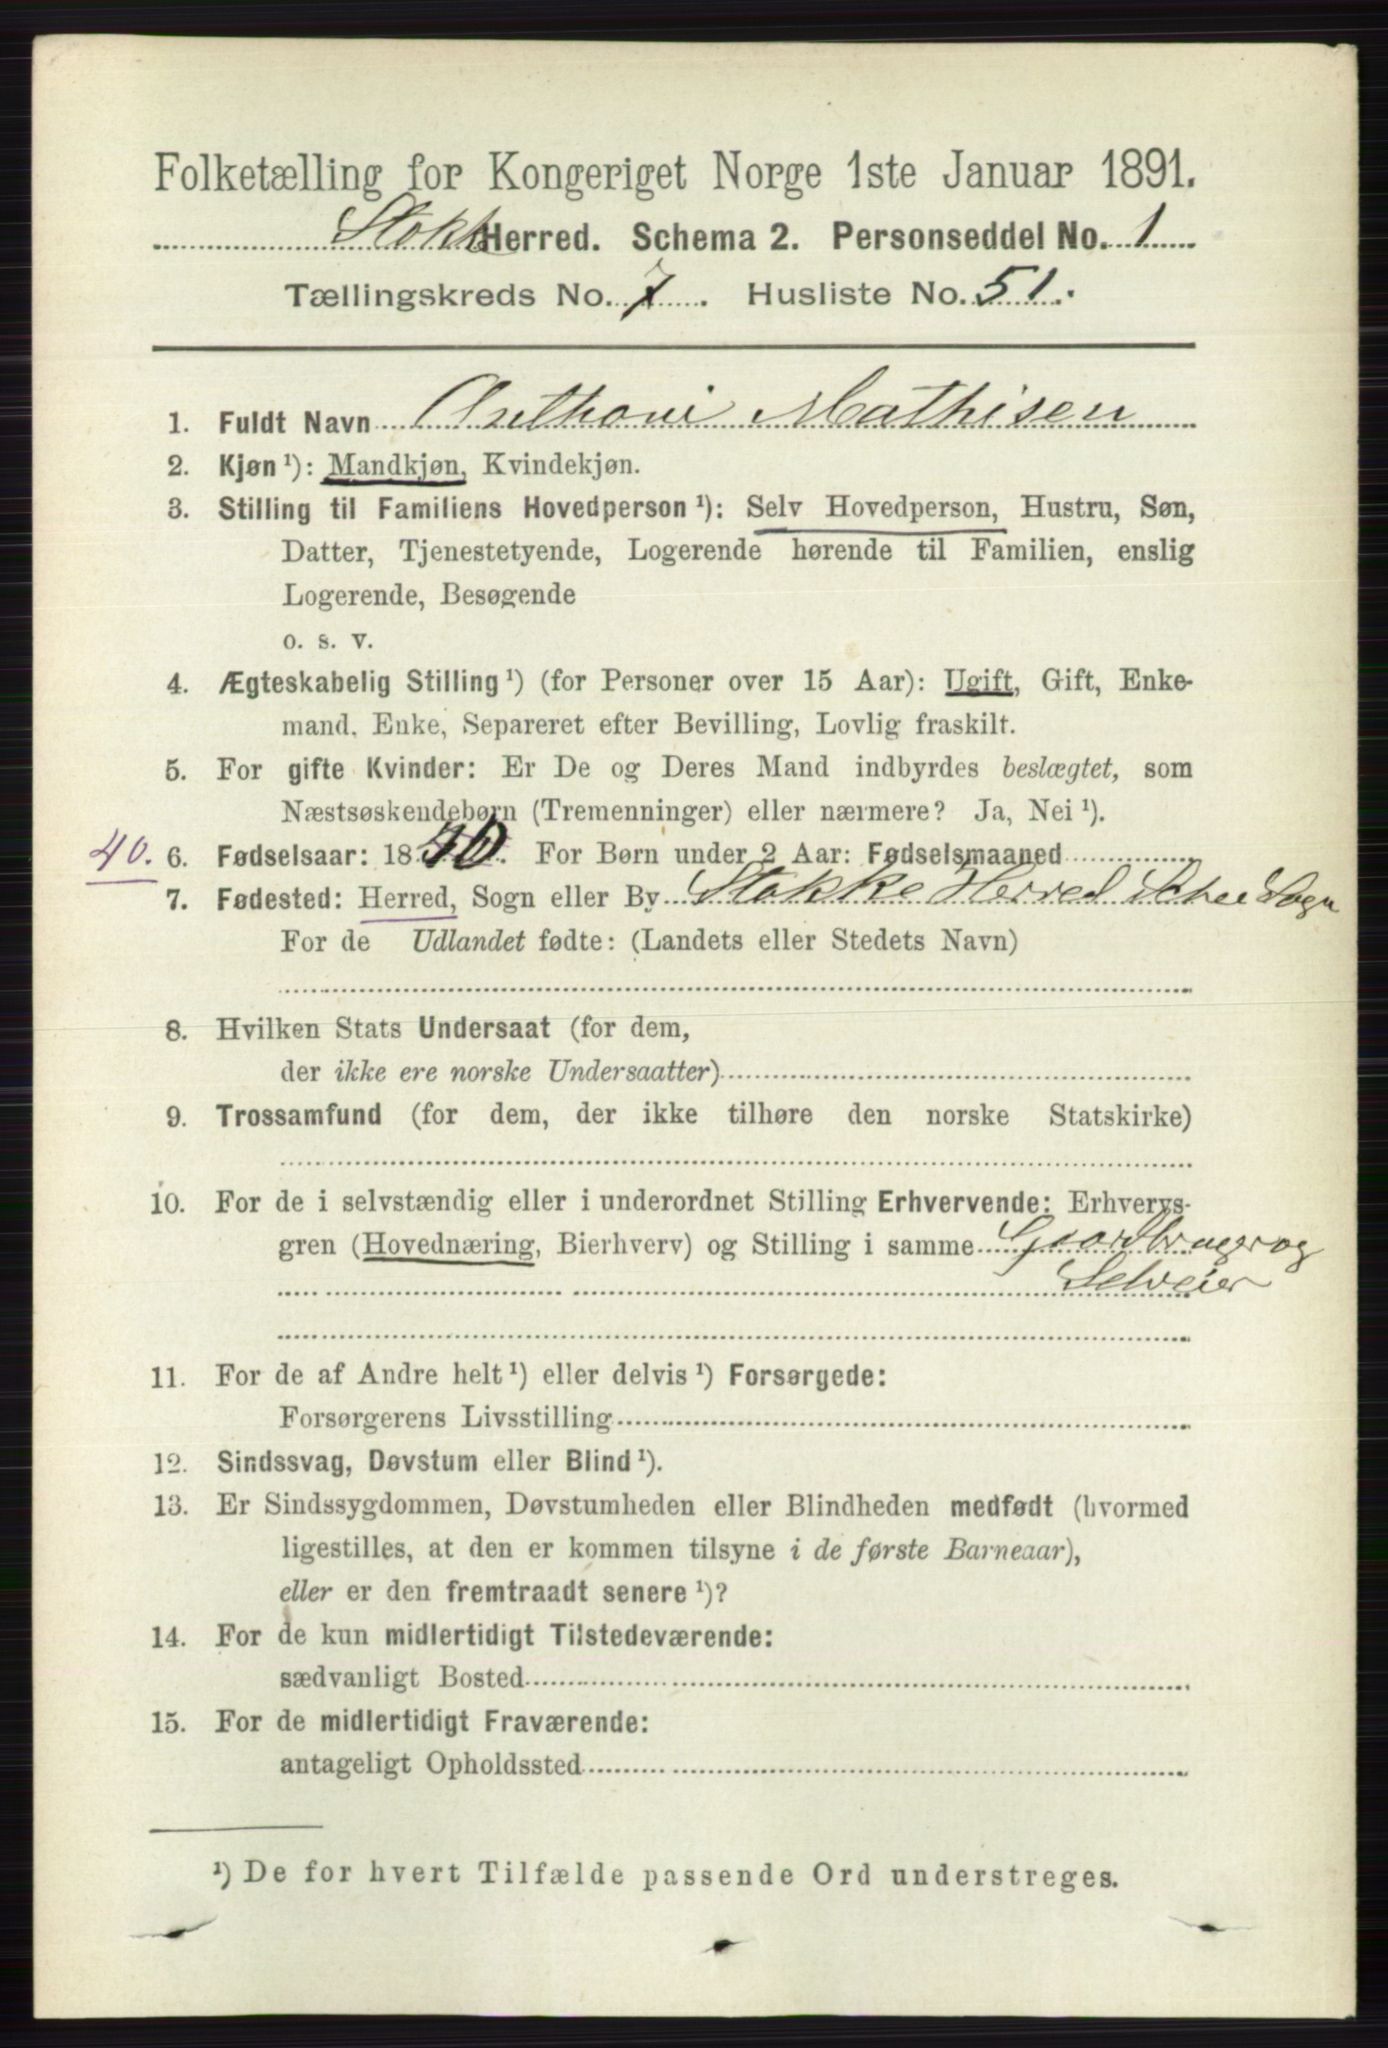 Folketælling for Kongeriget Norge 1ste Januar 1891.
Stokke Herred. Schema 2. Personseddel No. 1
Tællingskreds No. 7. Husliste No. 51.
1. Fuldt Navn Anthoni Mathisen
2. Kjøn ¹): Mandkjøn, Kvindekjøn.
3. Stilling til Familiens Hovedperson ¹): Selv Hovedperson, Hustru, Søn,
Datter, Tjenestetyende, Logerende hørende til Familien, enslig
Logerende, Besøgende
o. s. v.
4. Ægteskabelig Stilling ¹) (for Personer over 15 Aar): Ugift, Gift, Enke-
mand, Enke, Separeret efter Bevilling, Lovlig fraskilt.
5. For gifte Kvinder: Er De og Deres Mand indbyrdes beslægtet, som
Næstsøskendebørn (Tremenninger) eller nærmere? Ja, Nei ¹).
40. 6. Fødselsaar: 1840. For Børn under 2 Aar: Fødselsmaaned
7. Fødested: Herred, Sogn eller By Stokke Herred Sogn
For de Udlandet fødte: (Landets eller Stedets Navn)
8. Hvilken Stats Undersaat (for dem,
der ikke ere norske Undersaatter)
9. Trossamfund (for dem, der ikke tilhøre den norske Statskirke)
10. For de i selvstændig eller i underordnet Stilling Erhvervende: Erhvervs-
gren (Hovednæring, Bierhverv) og Stilling i samme Gaardbruger og
Selveier
11. For de af Andre helt ¹) eller delvis ¹) Forsørgede:
Forsørgerens Livsstilling
12. Sindssvag, Døvstum eller Blind ¹).
13. Er Sindssygdommen, Døvstumheden eller Blindheden medfødt (hvormed
ligestilles, at den er kommen tilsyne i de første Barneaar),
eller er den fremtraadt senere ¹)?
14. For de kun midlertidigt Tilstedeværende:
sædvanligt Bosted
15. For de midlertidigt Fraværende:
antageligt Opholdssted
¹) De for hvert Tilfælde passende Ord understreges.